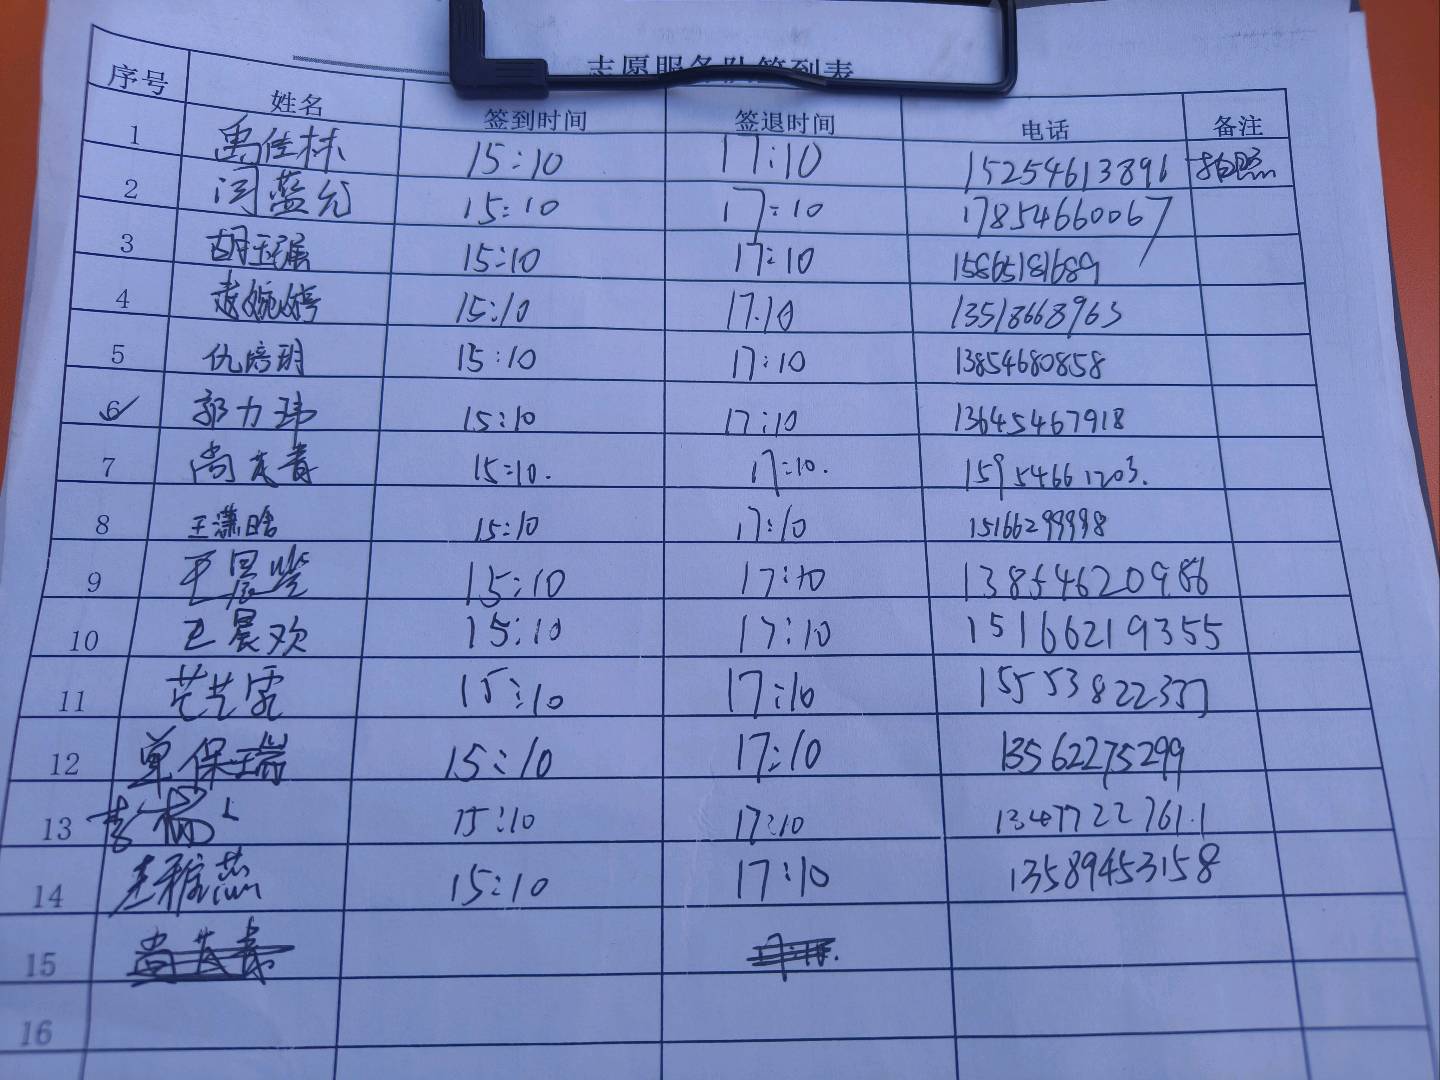 志愿服务队签到表
序号 姓名 签到时间 签退时间 电话 备注
1 禹佳林 15:10 17:10 15254613896 拍照
2 闫蓝允 15:10 17:10 17854660067
3 胡玉瑶 15:10 17:10 15865181689
4 婉婷 15:10 17:10 13518668963
5 仇培玥 15:10 17:10 13854680858
6 郭力玮 15:10 17:10 13645467918
7 尚茂青 15:10. 17:10. 15954661203.
8 王潇晗 15:10 17:10 15166299998
9 15:10 17:10 13854620986
10 王晨欢 15:10 17:10 15166219355
11 15:10 17:10
12 单保瑞 15:10 17:10 13562275299
13 15:10 17:10 13477227611
14 雅燕 15:10 17:10 13589453158
15 尚茂青 17:10.
16